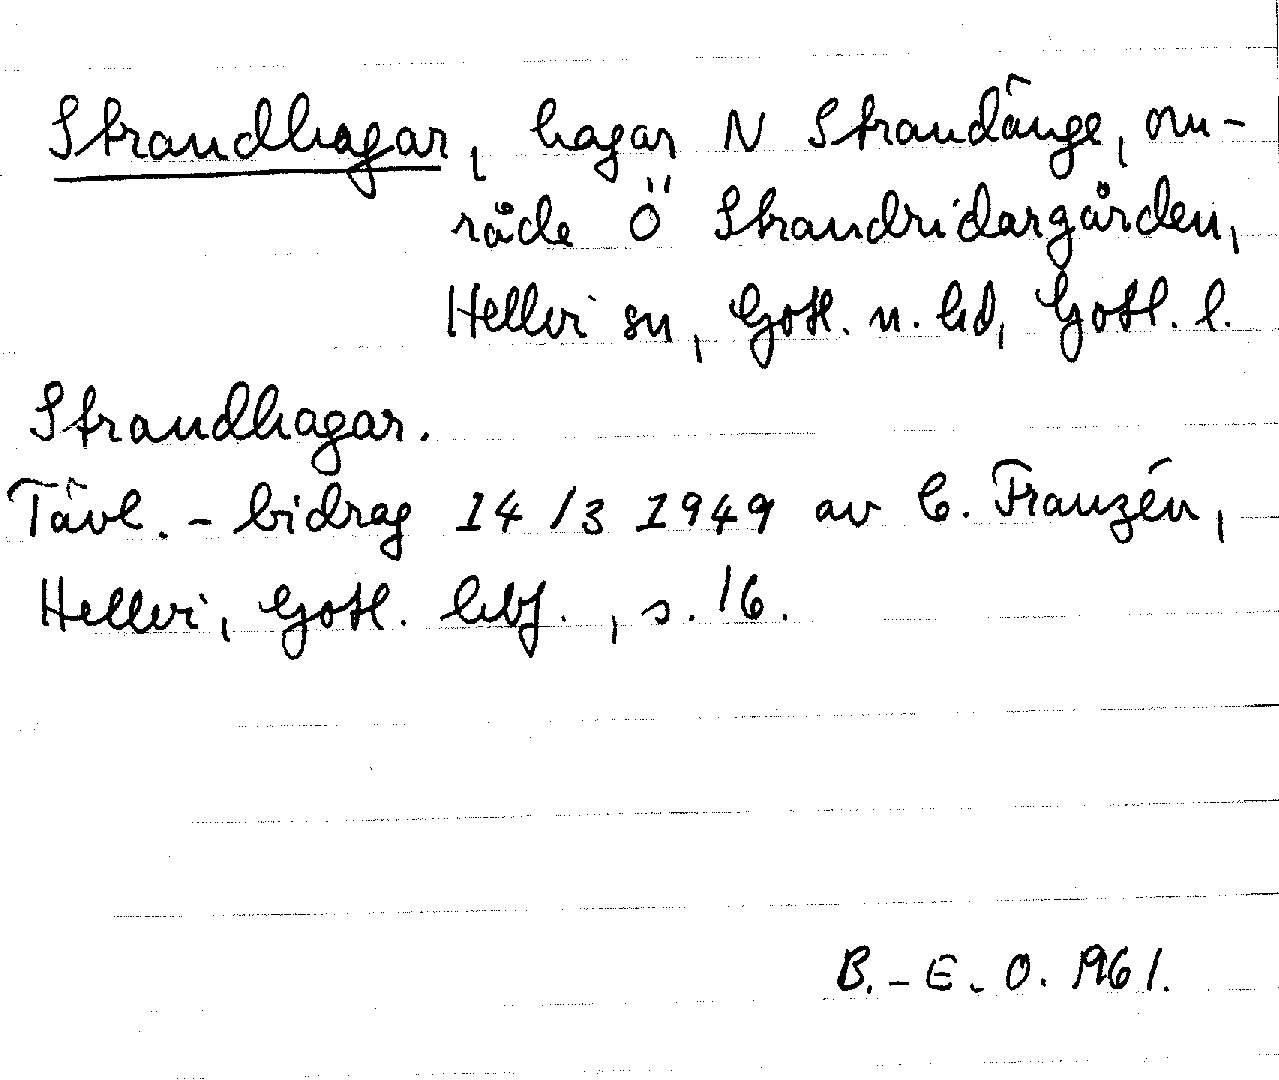 Strandhagar, hagar N Strandänge, om-
råde Ö Strandridargården,
Hellvi sn, Gotl. n. hd, Gotl. l.
Strandhagar.
Tävl. - bidrag 14/3 1949 av C. Franzén,
Hellvi, Gotl. hbf., s. 16.
B.-E. O. 1961.